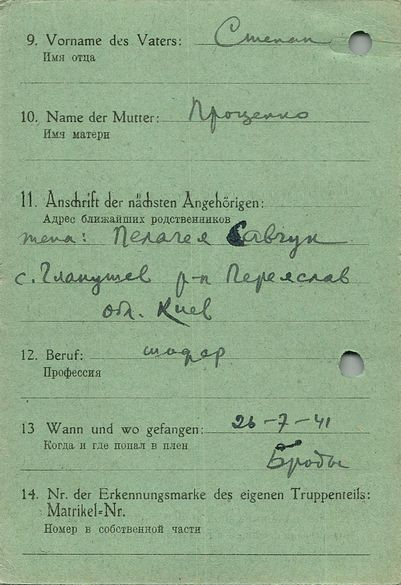 9. Vorname des Vaters: Степан
Имя отца
10. Name der Mutter: Проценко
Имя матери
11. Anschrift der nächsten Angehörigen:
Адрес ближайших родственников
жена: Пелагея Савчук
с. р-н Переяслав
обл. Киев
12. Beruf: шофер
Профессия
13 Wann und wo gefangen: 26-7-41
Когда и где попал в плен
Броды
14. Nr. der Erkennungsmarke des eigenen Truppenteils:
Matrikel=Nr.
Номер в собственной части